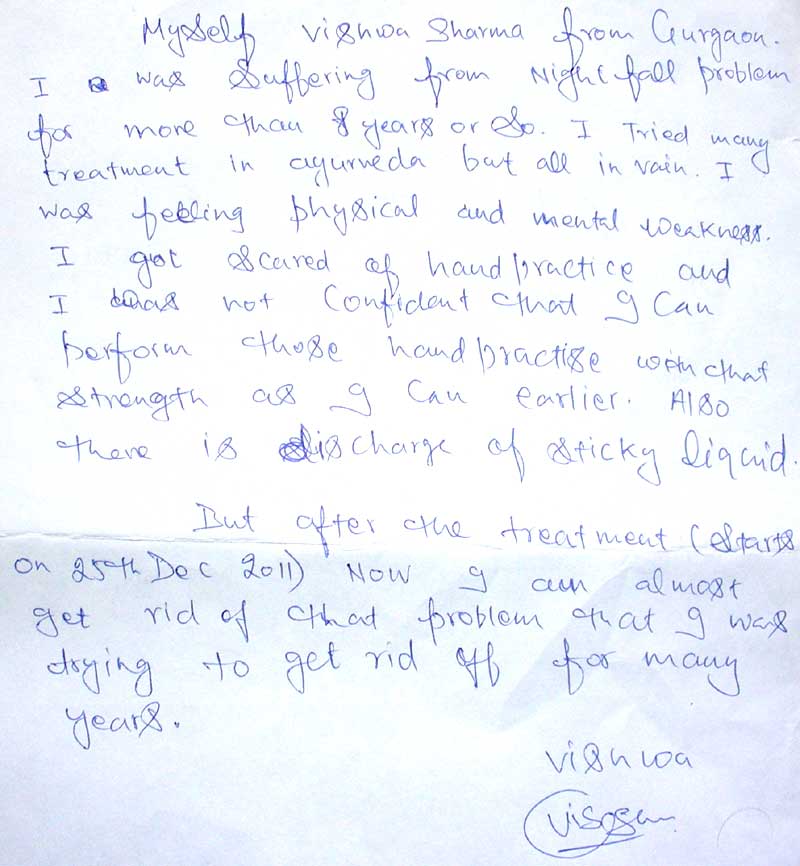 Myself Vishwa Sharma from Gurgaon.
I was suffering from Nightfall problem
for more than 8 years or so. I Tried many
treatment in ayurveda but all in vain. I
was feeling physical and mental weakness.
I got scared of handpractice and
I was not Confident that I Can
perform those handpractise with that
strength as I Can earlier. Also
there is discharge of sticky liquid.
But after the treatment (starts
on 25th Dec 2011) Now I am almost
get rid of that problem that I was
trying to get rid off for many
years.
Vishwa